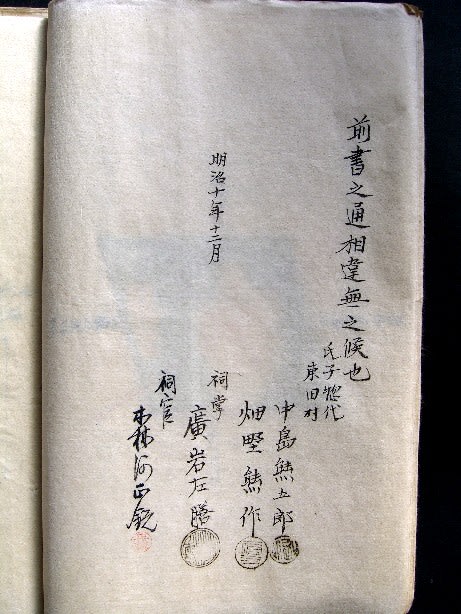 前書之通相違無之候也
氏子惣代
東田村
中島熊五郎
畑野熊作
明治十年十二月
祠掌
廣岩左膳
祠官
森河正